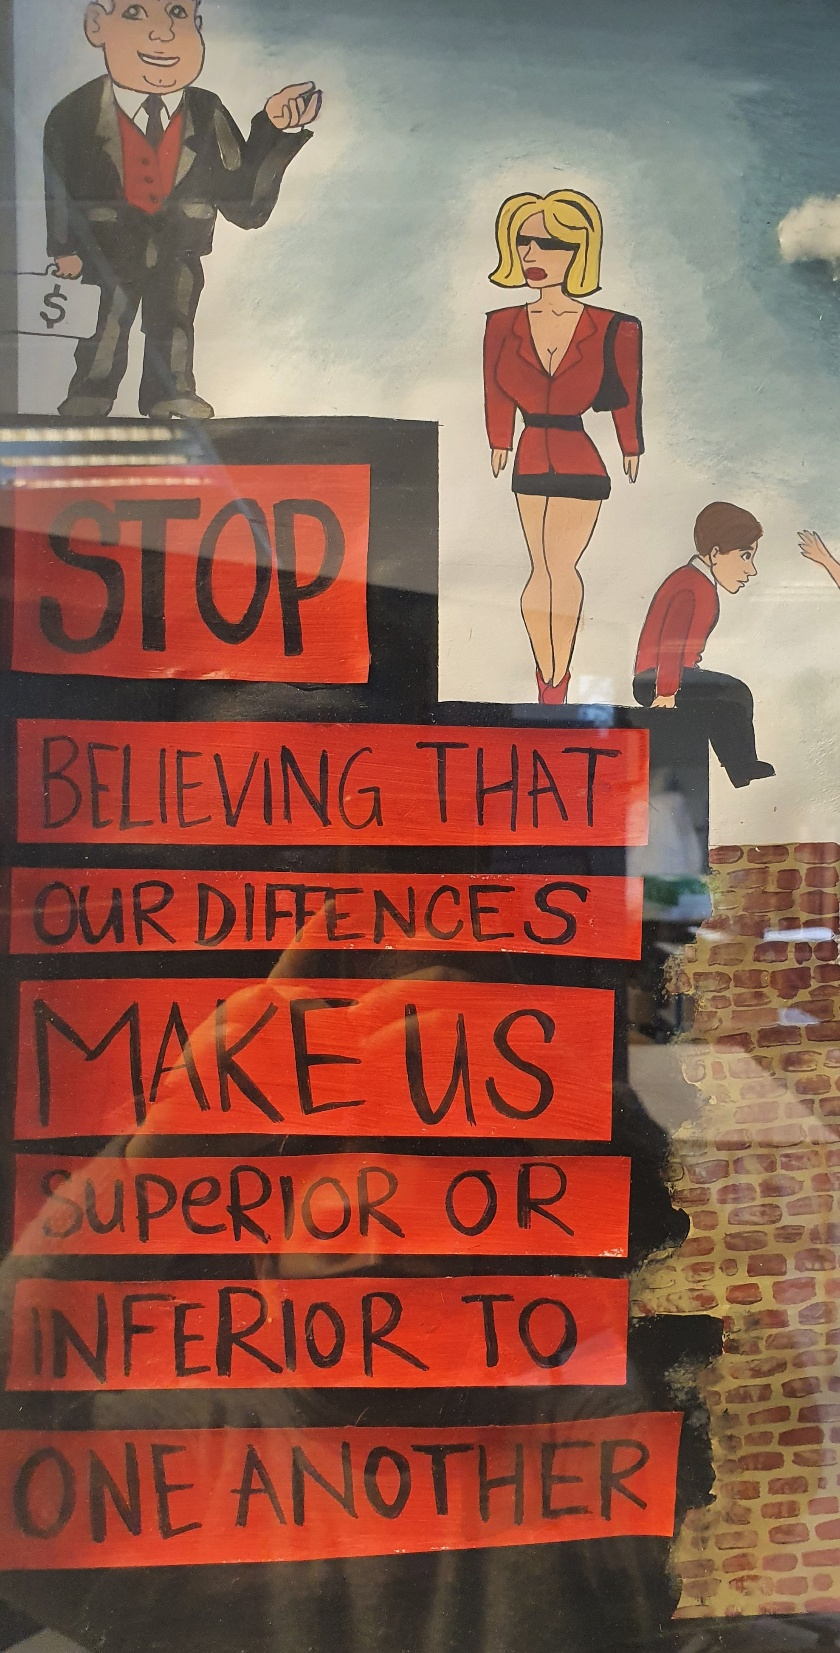 $
STOP
BELIEVING THAT
OUR DIFFENCES
MAKE US
SUPeRIOR OR
INFERIOR TO
ONE ANOTHER